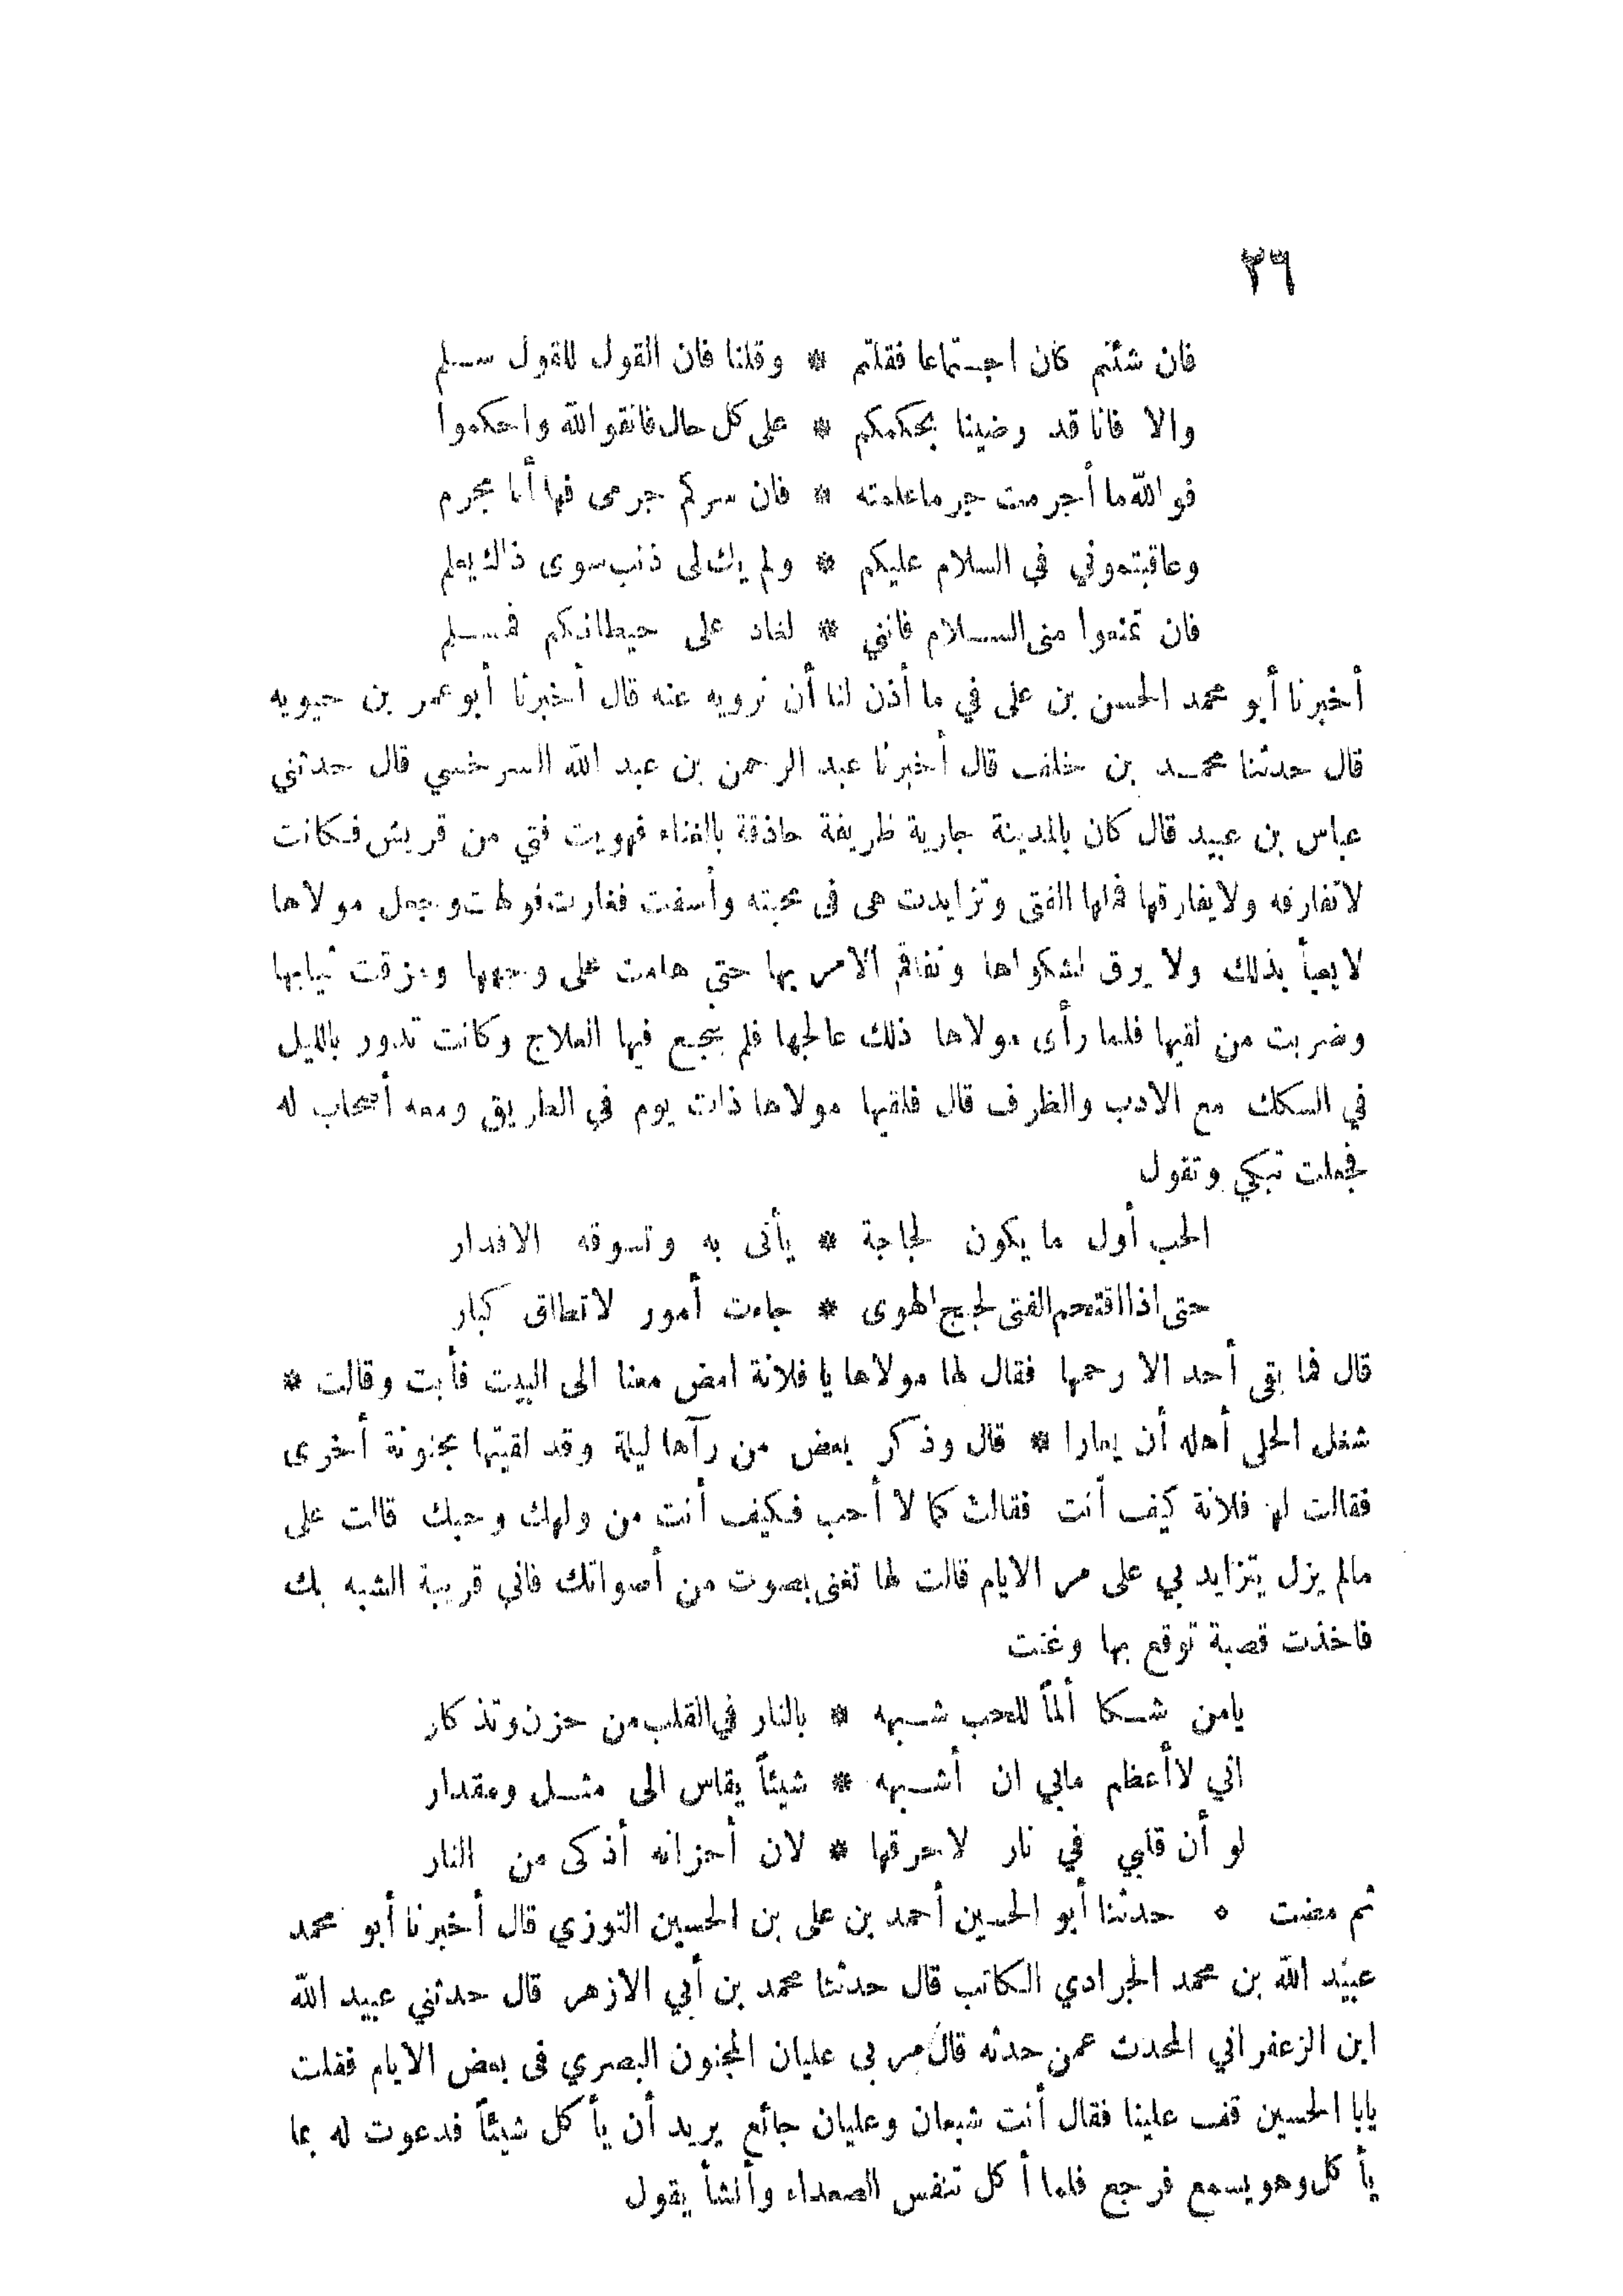 ٣٦
فان شئتم كان اجتماعا فقلتم * وقلنا فان القول للقول سلم
والا فانا قد رضينا بحكمكم * على كل حال فاتقوا الله واحكموا
فوالله ما أجرمت جرما علمته * فان سركم جرمى فها أنا مجرم
وعاقبتموني في السلام عليكم * ولم يك لى ذنب سوى ذاك يعلم
فان تمنعوا منى السلام فانني * لغاد على حيطانكم فمسلم
أخبرنا أبو محمد الحسن بن على في ما أذن لنا أن نرويه عنه قال أخبرنا أبو عمر بن حيويه
قال حدثنا محمد بن خلف قال أخبرنا عبد الرحمن بن عبد الله السرخسي قال حدثني
عباس بن عبيد قال كان بالمدينة جارية ظريفة حاذقة بالغناء فهويت فتي من قريش فكانت
لا تفارقه ولا يفارقها فملها الفتى وتزايدت هى فى محبته وأسفت فغارت فولهت وجعل مولاها
لا يعبأ بذلك ولا يرق لشكواها وتفاقم الامر بها حتي هامت على وجهها ومزقت ثيابها
وضربت من لقيها فلما رأى مولاها ذلك عالجها فلم ينجع فيها العلاج وكانت تدور بالليل
في السكك مع الادب والظرف قال فلقيها مولاها ذات يوم في الطريق ومعه أصحاب له
فجعلت تبكي وتقول
الحب أول ما يكون لجاجة * يأتى به وتسوقه الاقدار
حتى اذا اقتحم الفتى لجج الهوى * جاءت أمور لا تطاق كبار
قال فما بقى أحد الا رحمها فقال لها مولاها يا فلانة امض معنا الى البيت فأبت وقالت *
شغل الحلى أهله أن يعارا * قال وذكر بعض من رآها ليلة وقد لقيتها مجنونة أخرى
فقالت لها فلانة كيف أنت فقالت كما لا أحب فكيف أنت من ولهك وحبك قالت على
مالم يزل يتزايد بي على مر الايام قالت لها تغنى بصوت من أصواتك فاني قريبة الشبه بك
فاخذت قصبة توقع بها وغنت
يامن شكا ألماً للحب شبهه * بالنار في القلب من حزن وتذكار
اني لا أعظم مابي ان أشبهه * شيئاً يقاس الى مثل ومقدار
لو أن قلبي في نار لاحرقها * لان أحزانه أذكى من النار
ثم مضت ٥ حدثنا أبو الحسين أحمد بن على بن الحسين التوزي قال أخبرنا أبو محمد
عبيد الله بن محمد الجرادي الكاتب قال حدثنا محمد بن أبي الازهر قال حدثني عبيد الله
ابن الزعفراني المحدث عمن حدثه قال مر بى عليان المجنون البصري فى بعض الايام فقلت
يابا الحسين قف علينا فقال أنت شبعان وعليان جائع يريد أن يأكل شيئاً فدعوت له بما
يأكل وهو يسمع فرجع فلما أكل تنفس الصعداء وأنشأ يقول